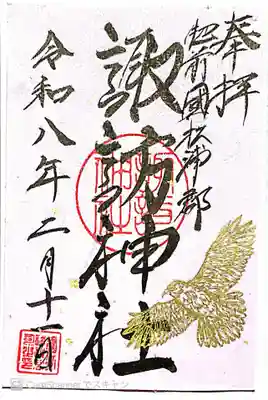 奉拝
肥前國松浦郡
諏訪神社
令和八年二月十一日
CamScanner でスキャン